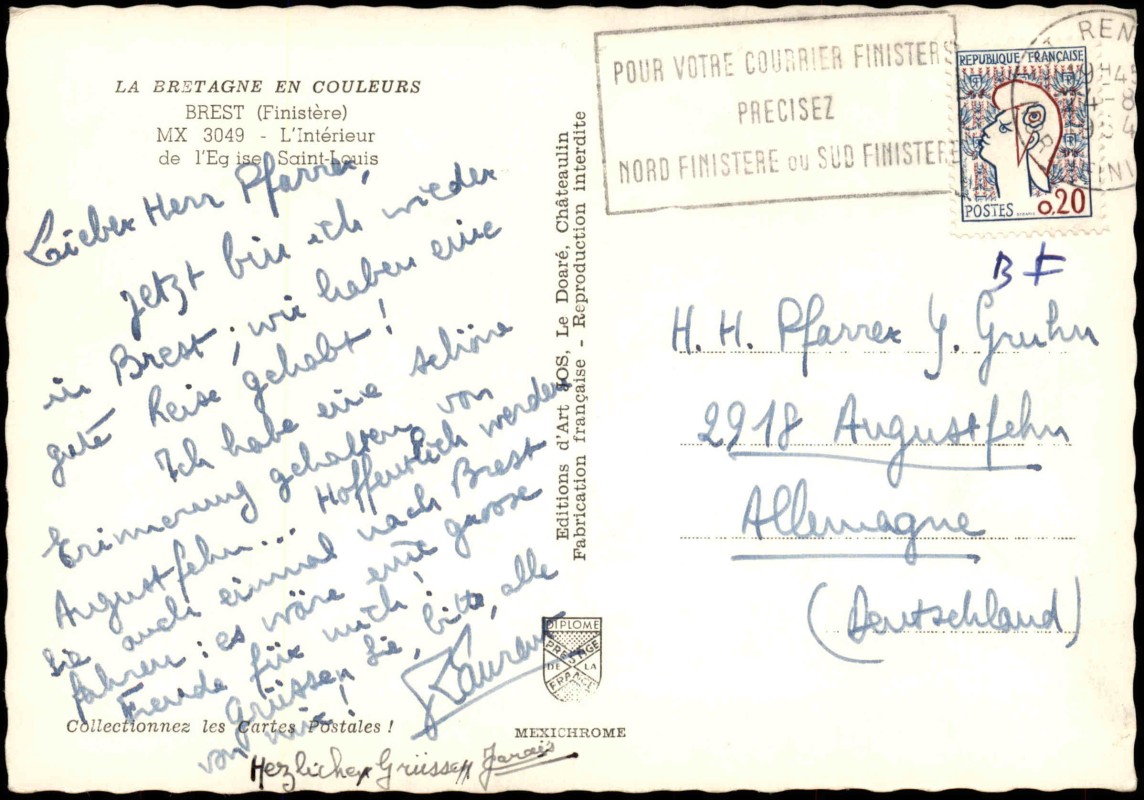 LA BRETAGNE EN COULEURS
BREST (Finistère)
MX 3049 - L'Intérieur
de l'Eglise Saint-Louis
Lieber Herr Pfarrer,
jetzt bin ich wieder
in Brest ; wir haben eine
gute Reise gehabt !
Ich habe eine schöne
Erinnerung gehalten von
Augustfehn... Hoffentlich werden
Sie auch einmal nach Brest
fahren : es wäre eine grosse
Freude für mich !
Grüssen Sie, bitte, alle
von mir !
Laurent
Herzlichen Grüssen
Collectionnez les Cartes Postales !
MEXICHROME
DIPLOME
PRESTIGE
DE LA
FRANCE
Editions d'Art JOS, Le Doaré, Châteaulin
Fabrication française - Reproduction interdite
POUR VOTRE COURRIER FINISTERE
PRECISEZ
NORD FINISTERE ou SUD FINISTERE
REPUBLIQUE FRANÇAISE
POSTES 0,20
B F
H. H. Pfarrer J. Gruhn
2918 Augustfehn
Allemagne
(Deutschland)